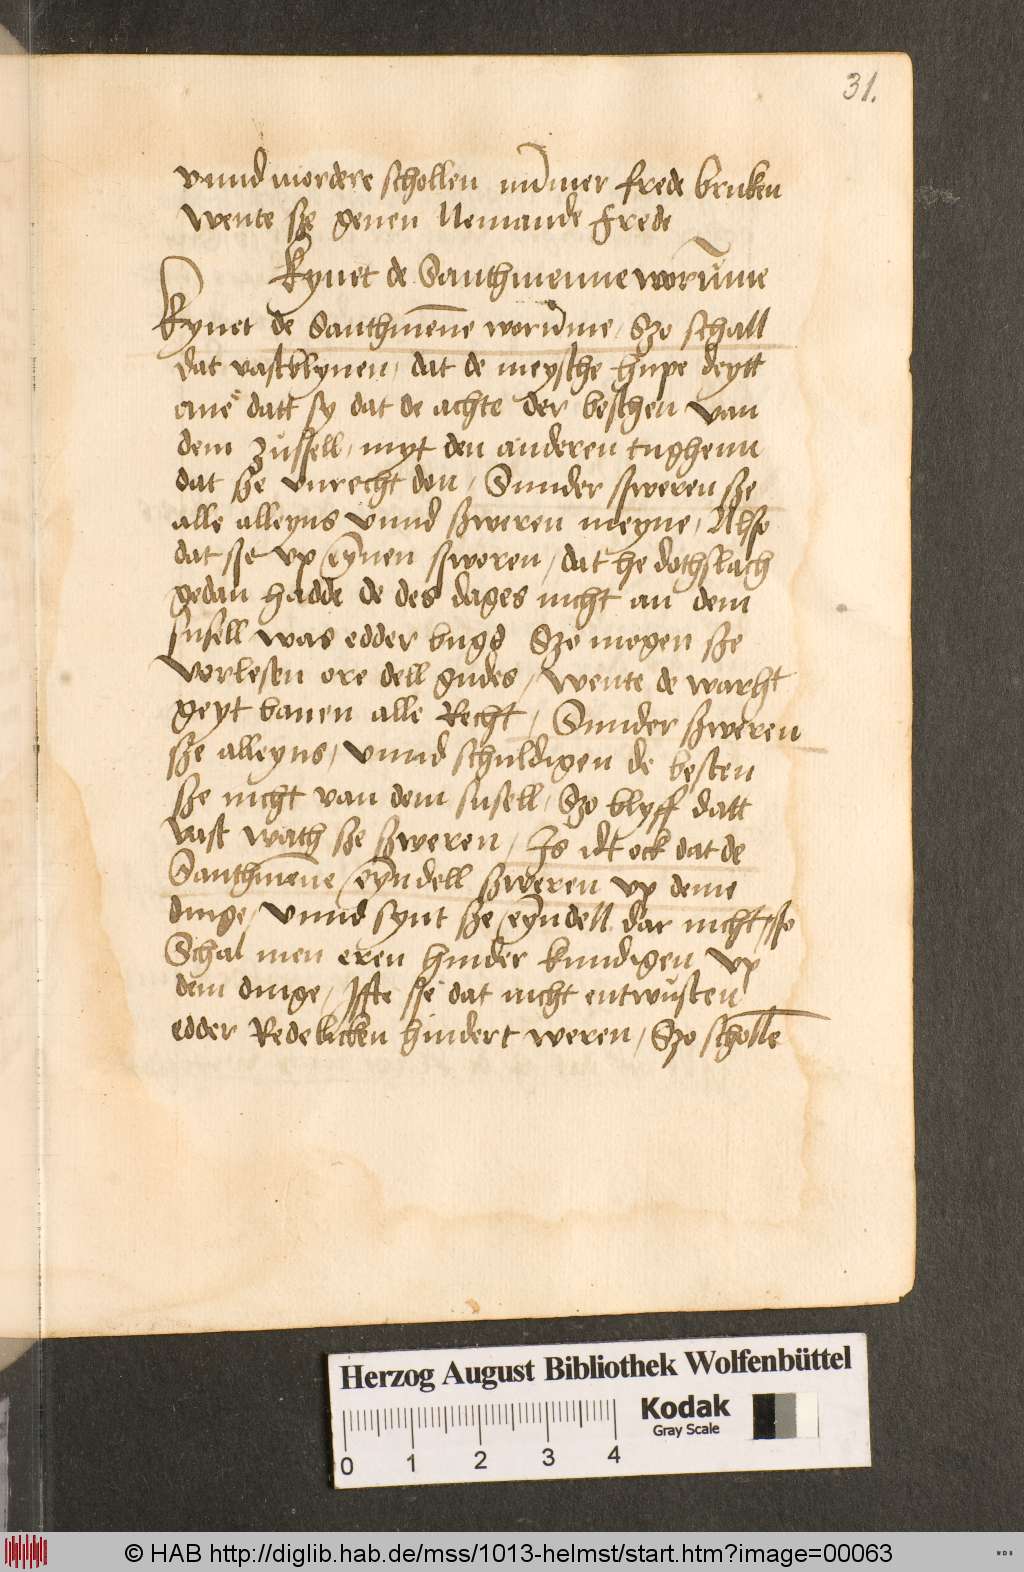 31.
vnnd mordere schollen nūmer frede bruken
wente sze geuen Nemande frede
Kynet de Santhmenne worūme
Kynet de Santhmēne worūme / Szo schall
dat vast blyuen / dat de meysche hupe deytt
ane datt sy dat de achte der besthen van
dem zussell / myt den anderen tughenn
dat sze vnrecht don / Sunder sweren sze
alle alleyns vnnd szweren meyne / Alse
dat sse vp eynen sworen / dat he dothslach
gedan hadde de des dages nicht an dem
susell was edder bugd Szo mogen sze
vorlesen ore dell gudes / wente de warht
geyt bauen alle Recht / Sunder szweren
sze alleyns / vnnd schuldigen de besten
sze nicht van dem susell / Szo blyff datt
vast wath sze szweren / Is idt ock dat de
Santhmēne eyndell szweren vp deme
dinge / vnnd synt sze eyndell dar nicht / sso
Schal men eren hinder kundigen vp
dem dinge / Iffte sse dat nicht entwusten
edder Redelicken hindert weren / Szo scholle
Herzog August Bibliothek Wolfenbüttel
Kodak
Gray Scale
0 1 2 3 4
© HAB http://diglib.hab.de/mss/1013-helmst/start.htm?image=00063